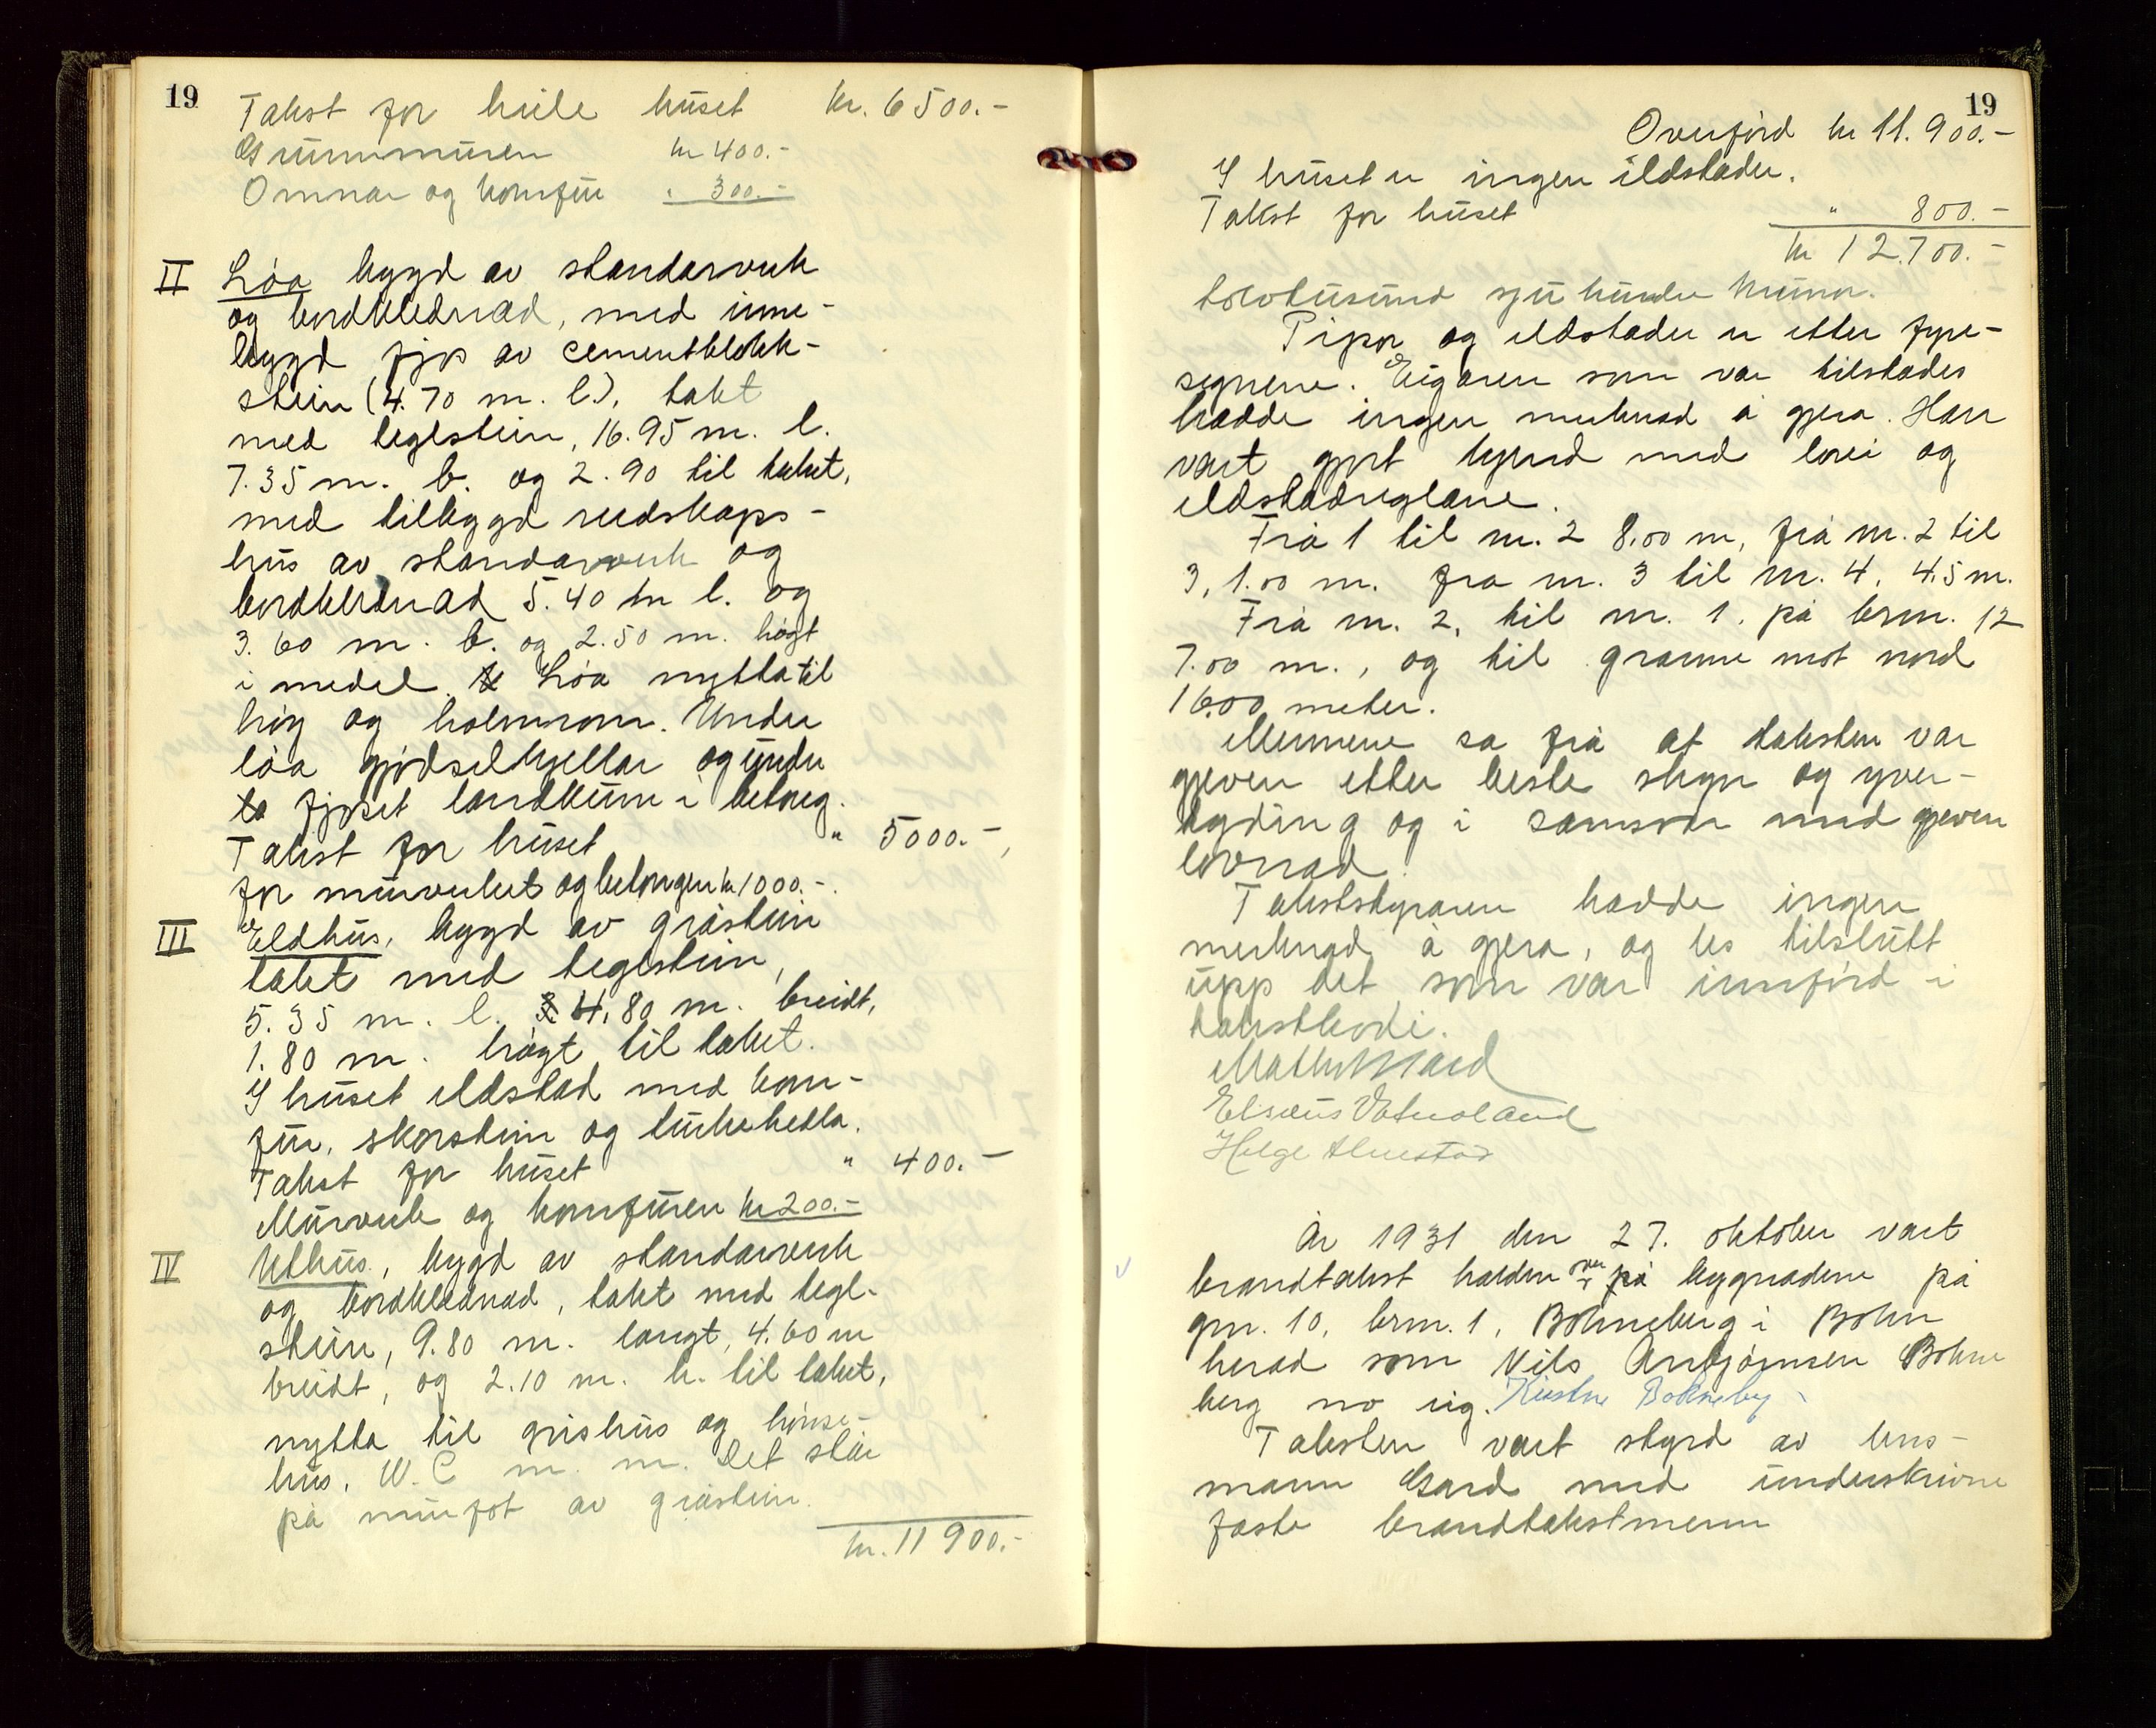 19
Takst for heile huset kr. 6500.-
Grunnmuren kr 400.-
Omnar og komfur " 300.-
II Löa bygd av standarverk
og bordklednad, med inne-
bygd fjos av cementblokk-
stein (4.70 m. l.), takt
med teglstein, 16.95 m. l.
7.35 m. b. og 2.90 til taket,
med tilbygd reidskaps-
hus av standarverk og
bordklednad 5.40 m l. og
3.60 m. b. og 2.50 m. högt
i medel. Löa nytta til
höy og halmrom. Under
löa gjödselkjellar og under
fjoset landkum i betong.
Takst for huset " 5000.-,
for murverket og betongen kr 1000.-.
III Eldhus, bygd av gråstein
takt med teglstein,
5.35 m. l. 4,80 m. breidt,
1.80 m. högt til taket.
I huset eldstad med kom-
fur, skorstein og turkehella.
Takst for huset " 400.-
Murverk og komfuren kr 200.-
IV Uthus, bygd av standarverk
og bordklednad, takt med tegl-
stein, 9.80 m. langt, 4.60 m
breidt, og 2.10 m. h. til taket,
nytta til grishus og hönse-
hus, W.C m. m. Det står
på murfot av gråstein.
kr. 11 900.-
19
Overförd kr 11.900.-
I huset er ingen ildstader.
Takst for huset " 800.-
kr 12.700.-
tolvtusund sju hundre kronor.
Pipor og eldstader er etter fyre-
segnene. Eigaren som var tilstades
hadde ingen merknad å gjera. Han
vart gjort kjend med lovi og
eldstadreglane.
Frå 1 til nr. 2 8.00 m, frå nr. 2 til
3, 1.00 m. fra nr. 3 til nr. 4, 4,5 m.
Frå nr. 2, til nr. 1, på brnr. 12
7.00 m., og til granne mot nord
16.00 meter.
Mennene sa frå at taksten var
gjeven etter beste skyn og yver-
tyding og i samsvar med gjeven
lovnad.
Takststyraren hadde ingen
merknad å gjera, og les tilslutt
upp det som var innförd i
takstbodi.
Elseus Vatnaland
Helge Alnestad
År 1931 den 27. oktober vart
brandtakst halden yver på bygnadene på
gnr. 10, brnr. 1, Bokneberg i Bokn
herad som Nils Anbjörnsen Bokne
berg no eig. Kristne Bokneberg
Taksten vart styrd av lens-
mann Gard med underskrivne
faste brandtakstmenn